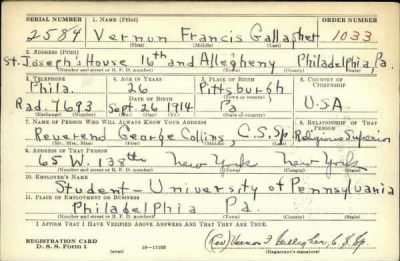 SERIAL NUMBER 1. NAME (Print) ORDER NUMBER
2584 Vernon Francis Gallagher 1033
(First) (Middle) (Last)
2. ADDRESS (Print)
St. Joseph's House 16th and Allegheny Philadelphia, Pa.
(Number and street or R. F. D. number) (Town) (County) (State)
3. TELEPHONE 4. AGE IN YEARS 5. PLACE OF BIRTH 6. COUNTRY OF CITIZENSHIP
Phila. 26 Pittsburgh
DATE OF BIRTH (Town or county)
Rad. 7693 Sept. 26 1914 Pa. U.S.A.
(Exchange) (Number) (Mo.) (Day) (Yr.) (State or country)
7. NAME OF PERSON WHO WILL ALWAYS KNOW YOUR ADDRESS 8. RELATIONSHIP OF THAT PERSON
Reverend George Collins, C.S.Sp. Religious Superior
(Mr., Mrs., Miss) (First) (Middle) (Last)
9. ADDRESS OF THAT PERSON
65 W. 138th New York New York
(Number and street or R. F. D. number) (Town) (County) (State)
10. EMPLOYER'S NAME
Student - University of Pennsylvania
11. PLACE OF EMPLOYMENT OR BUSINESS
Philadelphia Pa.
(Number and street or R. F. D. number) (Town) (County) (State)
I AFFIRM THAT I HAVE VERIFIED ABOVE ANSWERS AND THAT THEY ARE TRUE.
REGISTRATION CARD
D. S. S. Form 1 (over) 16-17105 (Rev) Vernon F. Gallagher C.S.Sp.
(Registrant's signature)